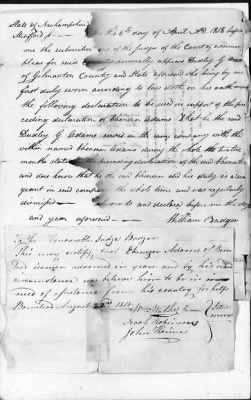 State of Newhampshire
Strafford ss — On this 6th day of April AD. 1818 before
me the subscriber one of the Justices of the Court of common
pleas for said County personally appears Dudley G Adams
of Gilmanton County and State aforesaid who being by me
first duly sworn according to law doth on his oath make
the following declaration to be used in support of the pre
ceding declaration of Ebenezer Adams. That he the said
Dudley G Adams served in the very company with the
within named Ebenezer Adams during the whole the twelve
months stated in the preceding declaration of the said Ebenezer
and due knows that he the said Ebenezer did his duty as a ser
geant in said company the whole time and was regularly
dismissed — Sworn to and declared before me the day
and year aforesaid — William Badger
To The Honorable Judge Badger
This may certify that Ebenezer Adams of Barn
sted is a man advanced in years and by his
circumstances we believe him to be in
need of assistance from his country for help
Barnstead August 1818
Robinson
John